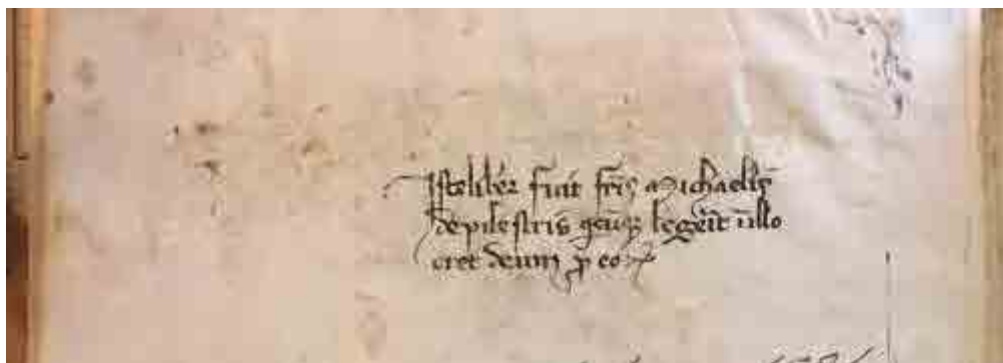 Iste liber fuit fr̄is Michaelis
de pilestris q̄cūq; leger̄it ī illo
oret deum ꝓ eo